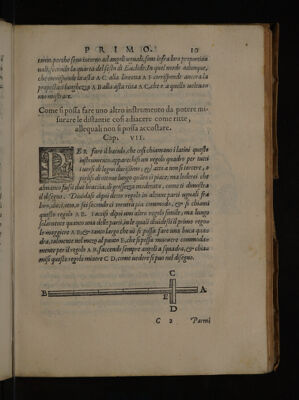 PRIMO. 10
tirio, perche sono intorno ad angoli uguali, sono infra loro proportio
nali, secondo la quarta del sesto di Euclide. In quel modo adunque,
che corrisponde la asta A C. alla linetta A F. corrisponde ancora la
propostaci lunghezza A B alla asta ritta A C, che è a questo voleua-
mo mostrare.
Come si possa fare uno altro instrumento da potere mi-
surare le distantie cosi adiacere come ritte,
allequali non si possa accostare.
Cap. VII.
PER fare il baculo, che cosi chiamano i latini questo
instrumento, apparecchisi un regolo quadro per tutti
i uersi di legno durissimo, egr atto a non si torcere, o
per se diuentare lungo quãto ti piace, ma habbi che
almanco sia di due braccia, di grossezza moderato, come ti dimostra
il disegno. Diuidasi dipoi detto regolo in alcune parti uguali fra
loro, dieci, uno, o sei secondo ti tornerà piu commodo, & si chiami
questo regolo A B. Facciasi dipoi uno altro regolo simile, ma lungo
solamente quanto una delle parti in le quali diuidesti il primo rego-
lo maggiore A B. & tanto largo che ui si possa fare una buca qua-
dra, talmente nel mezo al punto E, che si possa muouere commoda-
mente per il regolo A B. faccendo sempre angolo a squadra, & chia
misi questo regolo minore C D, come uedere si puo nel disegno.
C
B A
E
D
C 2 Parmi